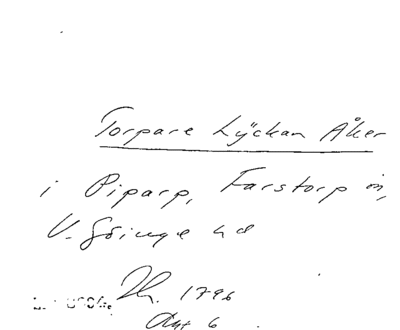 Torpare Lyckan Åker
i Piparp, Farstorp sn,
V. Göinge hd
1796
Akt 6